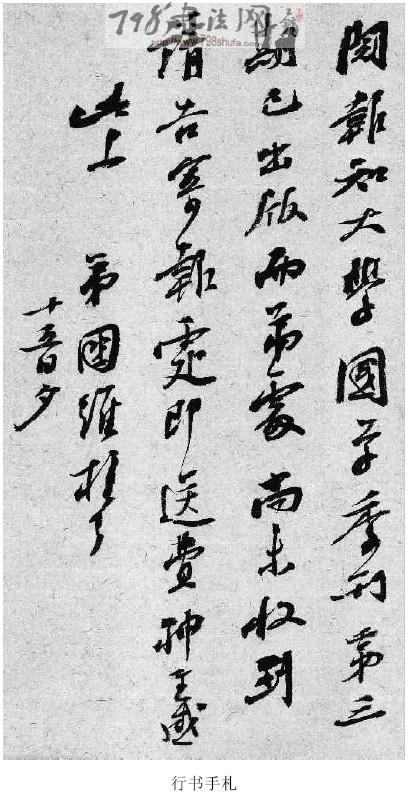 798书法网
http://www.798shufa.com
閱報知大學國學季刊第三
已出版而弟處尚未收到
請告寄報處即送費神至感
此上 弟國維
十五日夕
行书手札